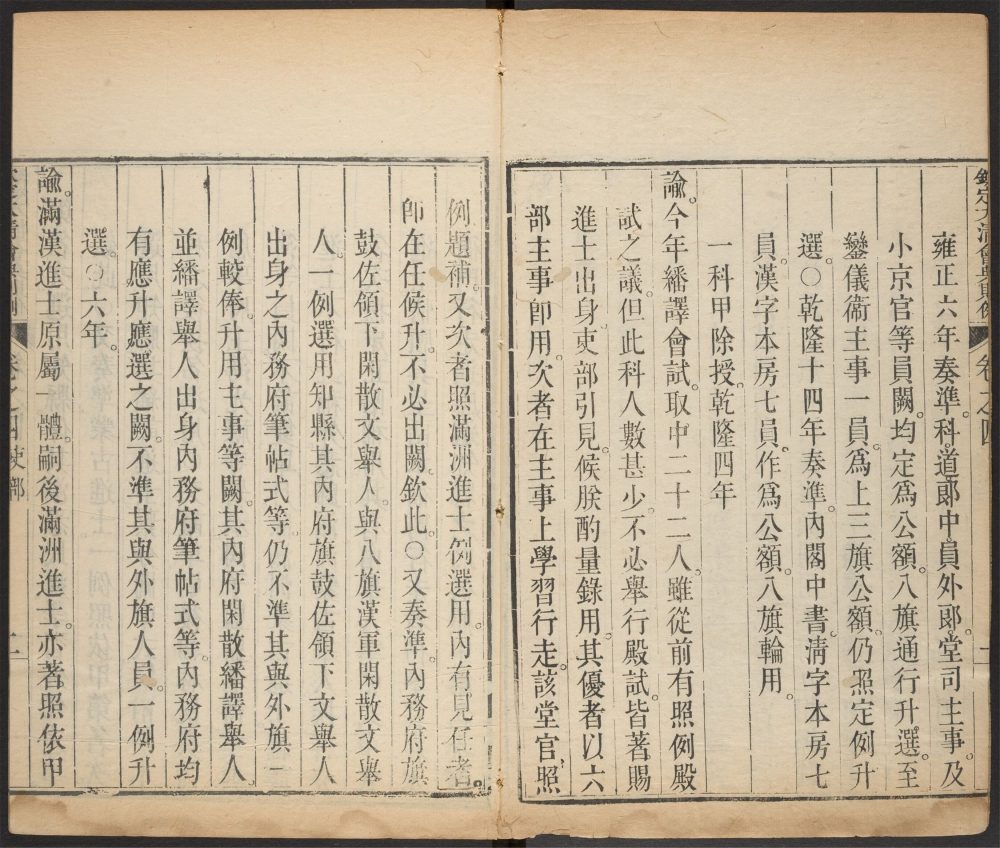 欽定大清會典則例 卷之四
雍正六年奏準。科道郎中員外郎。堂司主事。及
小京官等員闕。均定爲公額。八旗通行升選。至
鑾儀衞主事一員。爲上三旗公額。仍照定例升
選。○乾隆十四年奏準。內閣中書。淸字本房七
員。漢字本房七員。作爲公額。八旗輪用。
一科甲除授。乾隆四年
諭。今年繙譯會試。取中二十二人。雖從前有照例殿
試之議。但此科人數甚少。不必舉行殿試。皆著賜
進士出身。吏部引見。候朕酌量錄用。其優者以六
部主事卽用。次者在主事上學習行走。該堂官照
例題補。又次者照滿洲進士例選用。內有見任者。
卽在任候升。不必出闕。欽此。○又奏準。內務府旗
鼓佐領下閑散文舉人。與八旗漢軍閑散文舉
人。一例選用知縣。其內府旗鼓佐領下文舉人
出身之內務府筆帖式等。仍不準其與外旗一
例較俸。升用主事等闕。其內府閑散繙譯舉人。
並繙譯舉人出身內務府筆帖式等。內務府均
有應升應選之闕。不準其與外旗人員。一例升
選。○六年。
諭。滿漢進士。原屬一體。嗣後滿洲進士。亦著照依甲
卷之四吏部 二